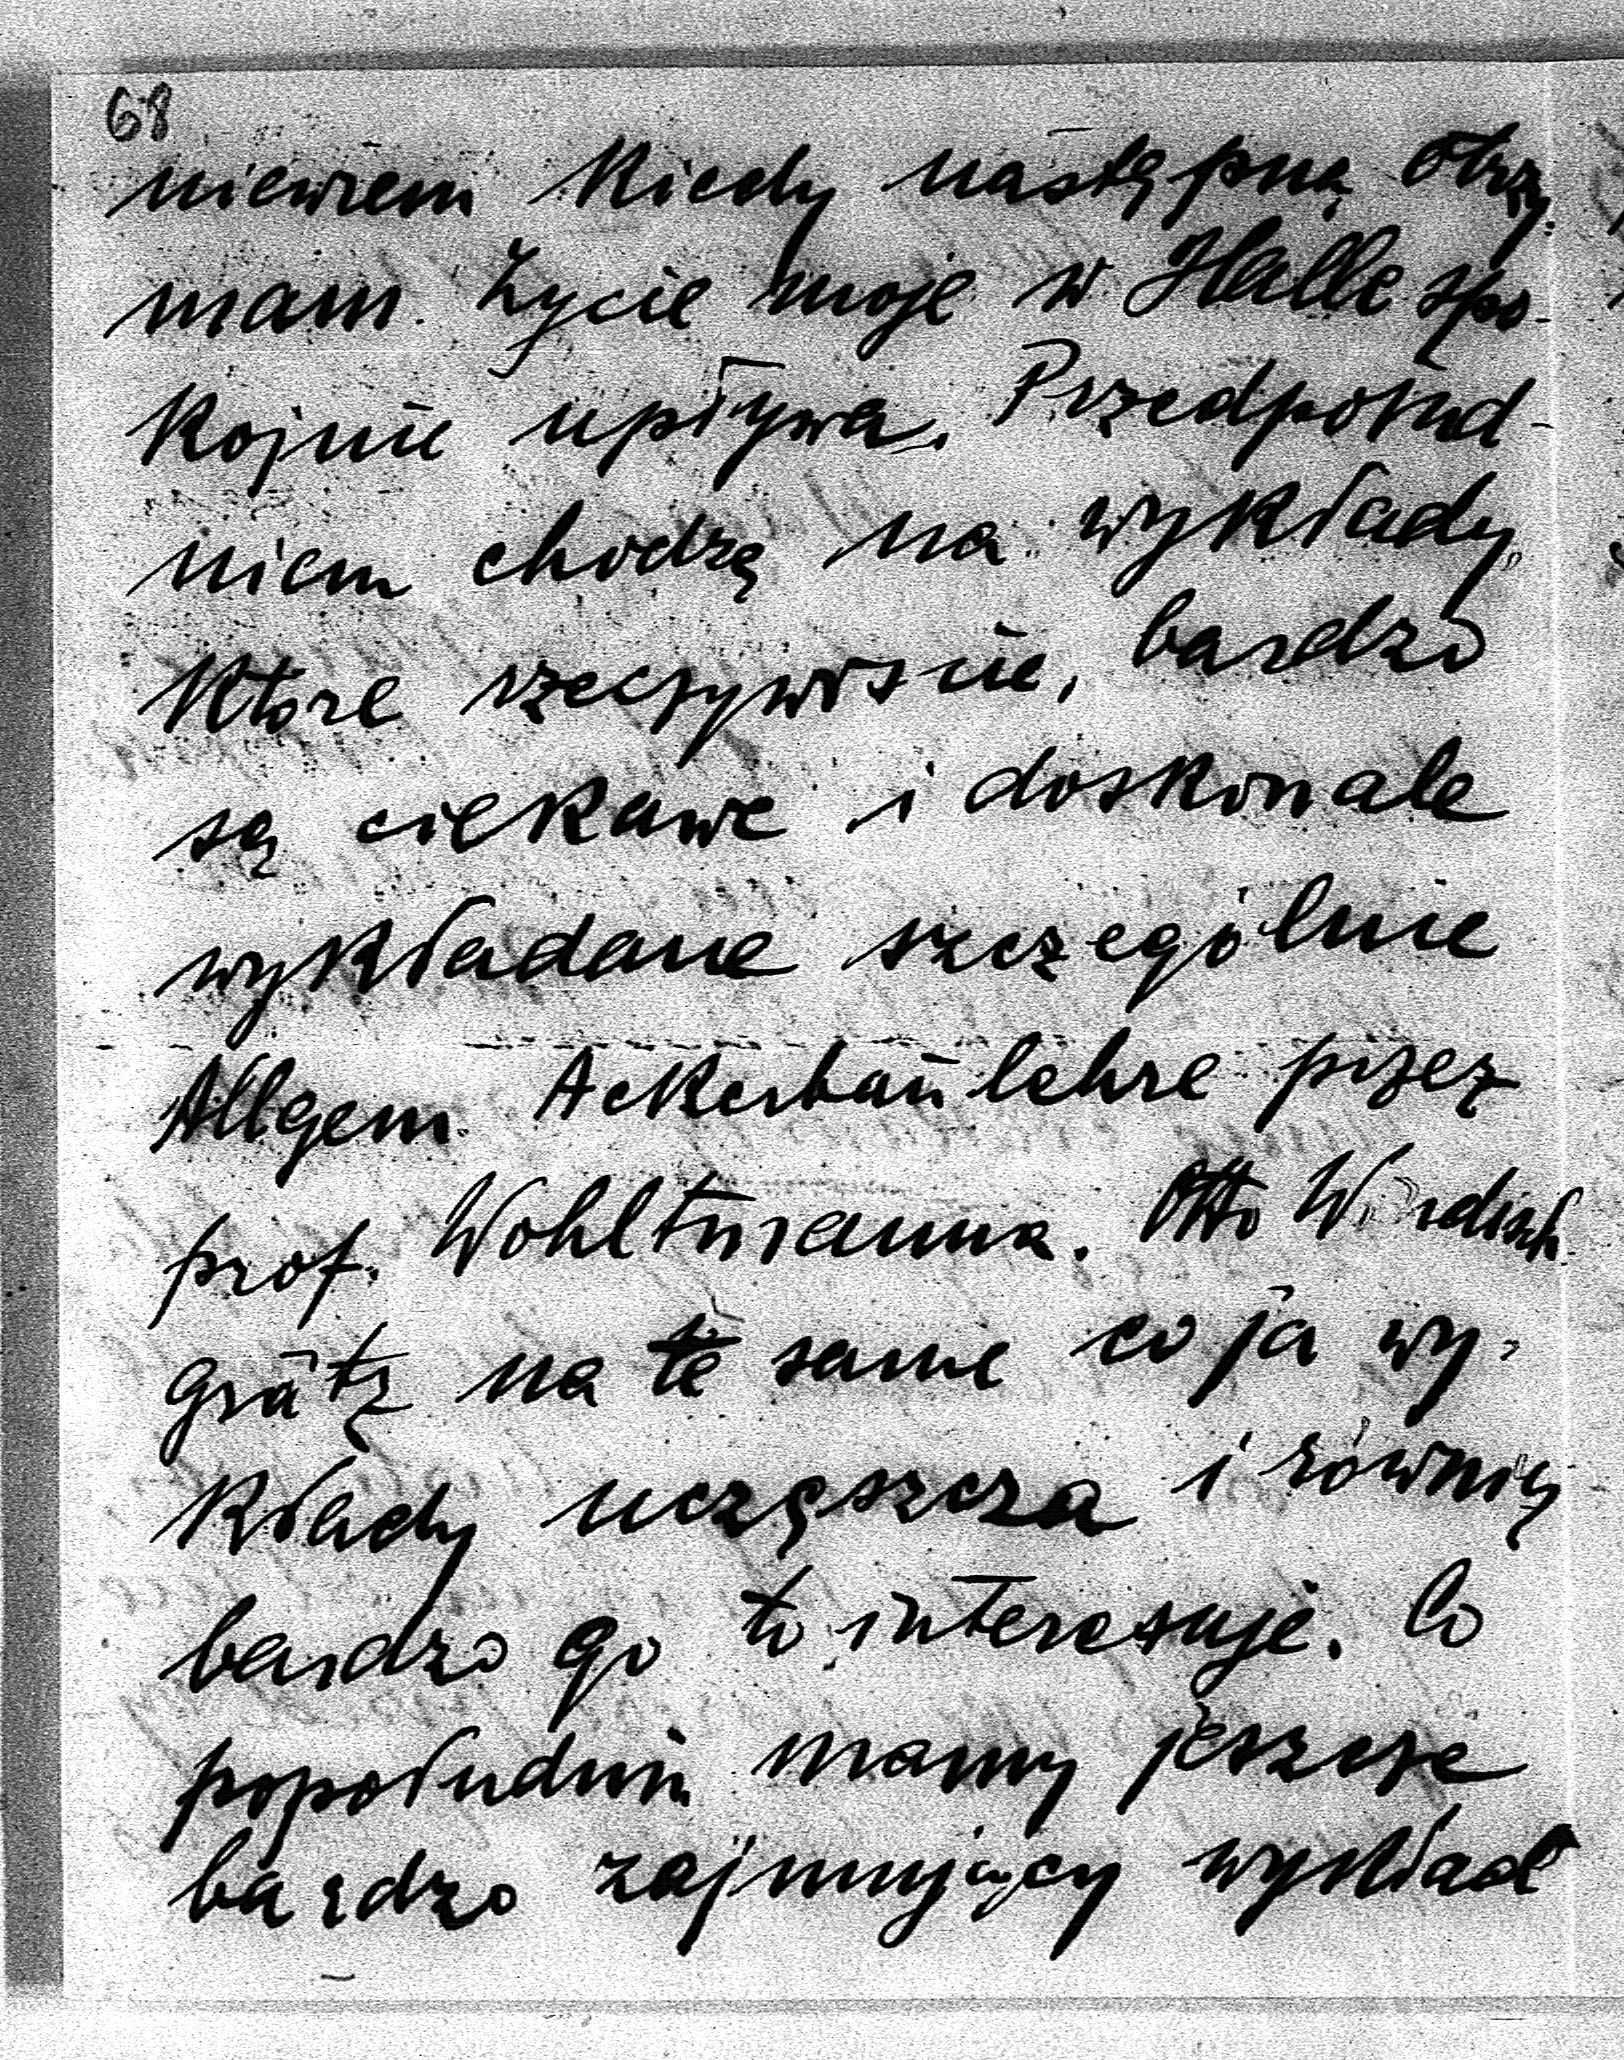 68
niewiem kiedy następną otrzy-
mam. Życie moje w Halle spo-
kojnie upływa. Przedpołud-
niem chodzę na wykłady,
które rzeczywiśnie, bardzo
są ciekawe i doskonale
wykładane szczególnie
Allgem. Ackerbaulehre przez
prof. Wohltmanna. Otto
Grätz na te same co ja wy-
kłady uczęszcza i równiez
bardzo go to interesuje. Co
popołudniu mamy jeszcze
bardzo zajmujący wykład